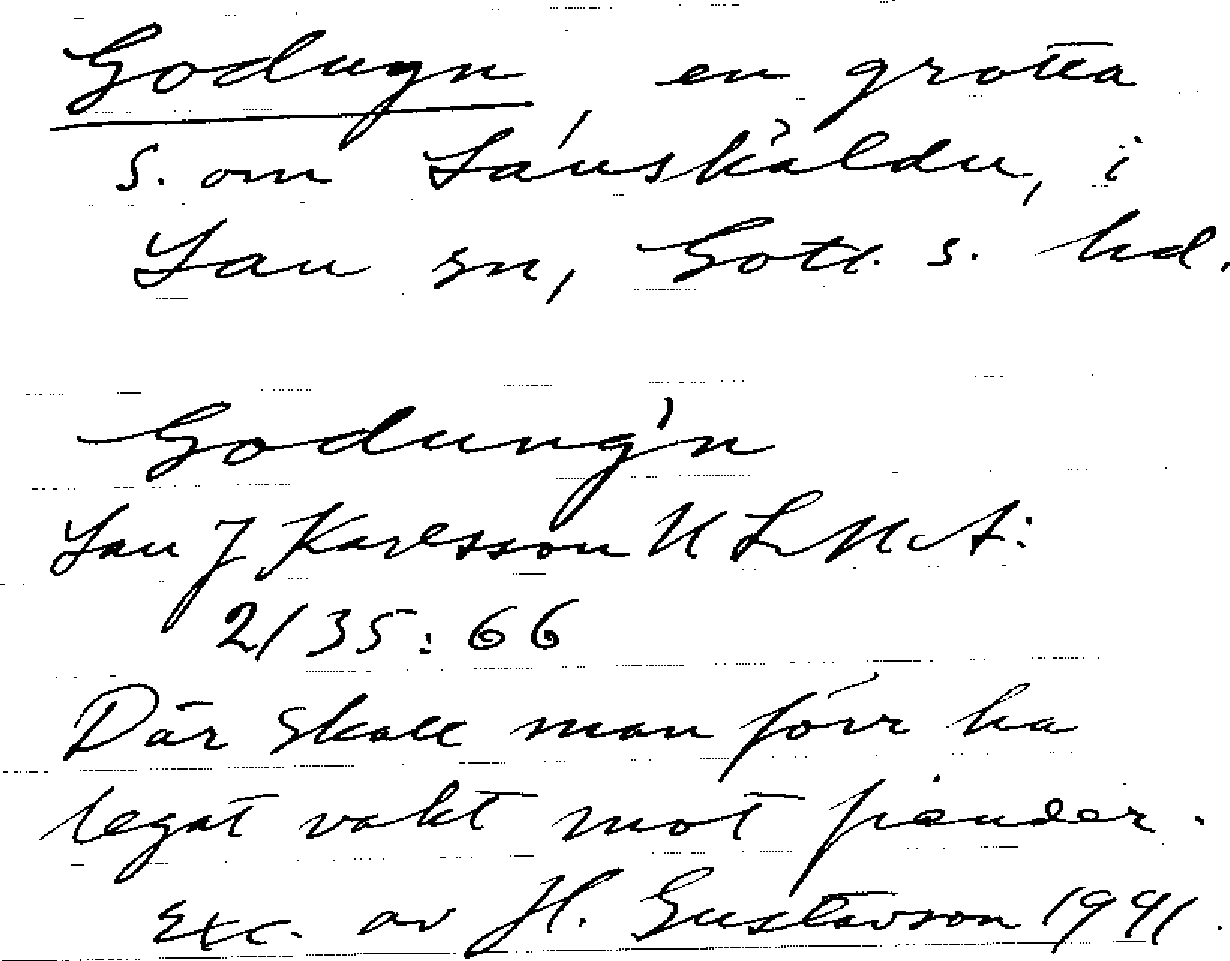 Godugn, en grotta
s. om Lauskäldu, i
Lau sn, Gotl. s. hd.
Godung'n
Lau J Karlsson N LMA:
2/35:66
Där skall man förr ha
legat vakt mot fiender.
Exc. av H. Gustavson 1991.